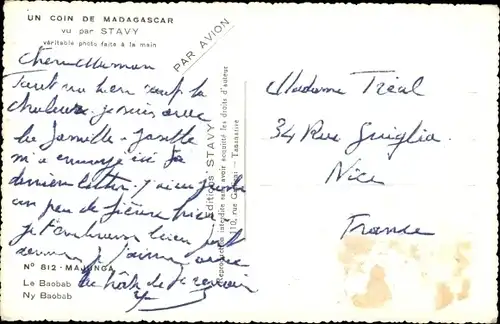 UN COIN DE MADAGASCAR
vu par STAVY
véritable photo faite à la main
PAR AVION
Chère Maman
Tout va bien sauf la
chaleur. je suis avec
la famille - Josette
m'a envoyé ici sa
dernière lettre. J'ai eu
un peu de fièvre hier
je t'embrasse bien fort
N° 812 - MAJUNGA
Le Baobab
Ny Baobab
Editions STAVY
110, rue - Tananarive
Reproduction interdite sans avoir acquitté les droits d'auteur
Madame Tréal
34 Rue Guiglia.
Nice
France